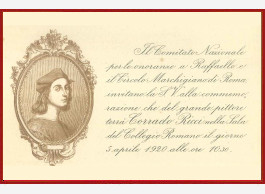 Il Comitato Nazionale
per le onoranze a Raffaello e
il Circolo Marchigiano di Roma
invitano la S.V. alla commemo,
razione che del grande pittore
terrà Corrado Ricci nella Sala
del Collegio Romano il giorno
5 aprile 1920 alle ore 10.30.